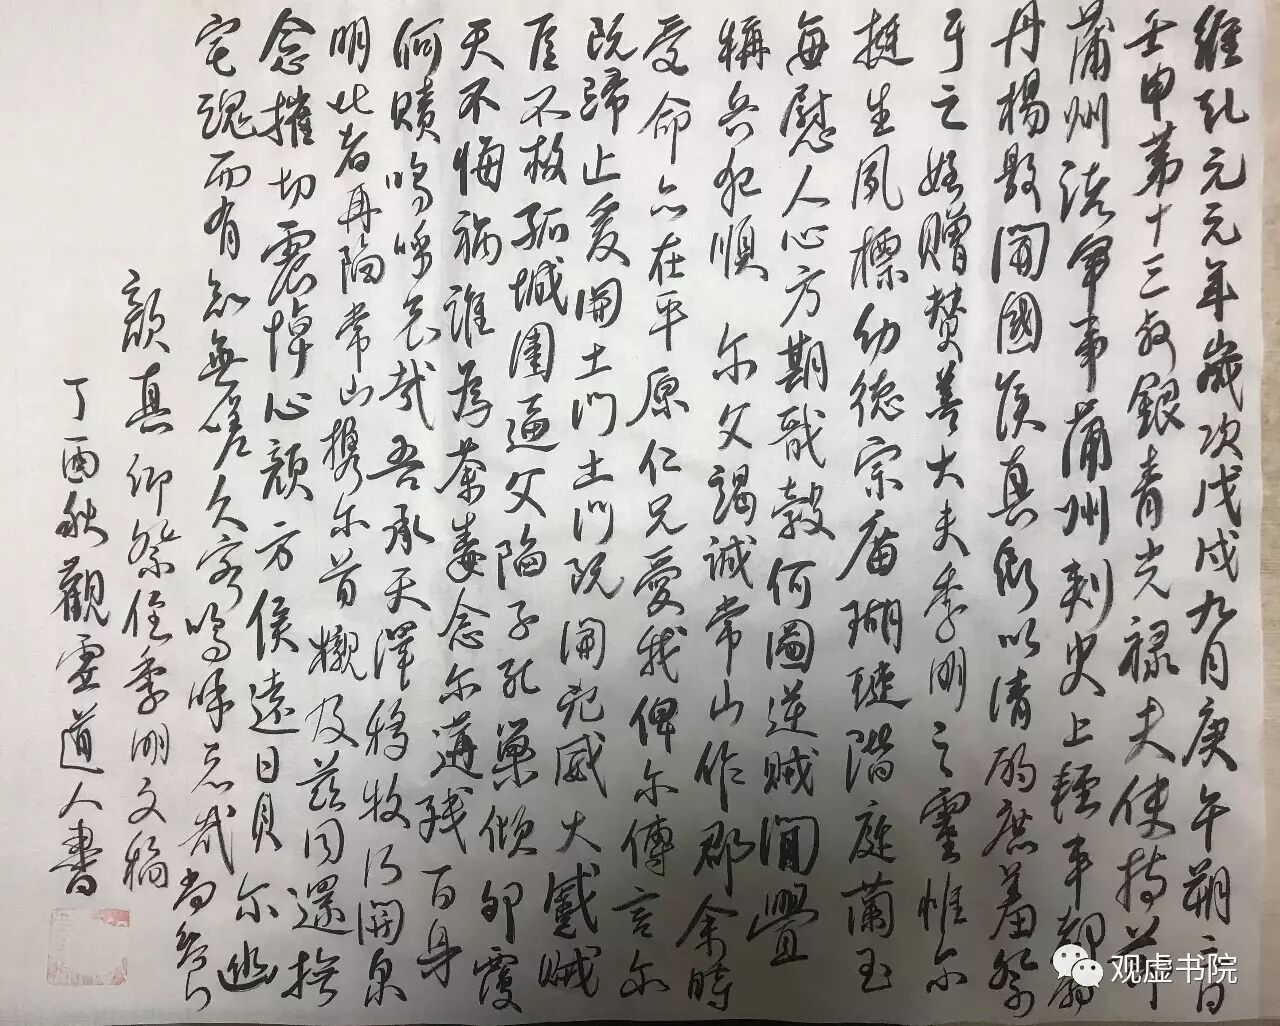 維乾元元年歲次戊戌九月庚午朔三日
壬申第十三叔銀青光禄夫使持节
蒲州諸軍事蒲州刺史上輕車都尉
丹楊縣開國侯真卿以清酌庶羞祭
于亡姪贈赞善大夫季明之靈惟尔
挺生夙標幼德宗庙瑚璉階庭蘭玉
每慰人心方期戩穀何圖逆賊閒釁
稱兵犯順 尔父竭誠常山作郡余時
受命亦在平原仁兄愛我俾尔傳言尔
既歸止爰開土门土门既開凶威大蹙賊
臣不救孤城圍逼父陷子死巢傾卵覆
天不悔祸誰為荼毒念尔遘残百身
何贖嗚呼哀哉吾承天澤移牧河關泉
明比者再陷常山攜尔首櫬及兹同還撫
念摧切震悼心颜方俟遠日 尔幽
宅魂而有知無嗟久客嗚呼哀哉尚饗
颜真卿祭侄季明文稿
丁酉秋觀虚道人書
观虚书院